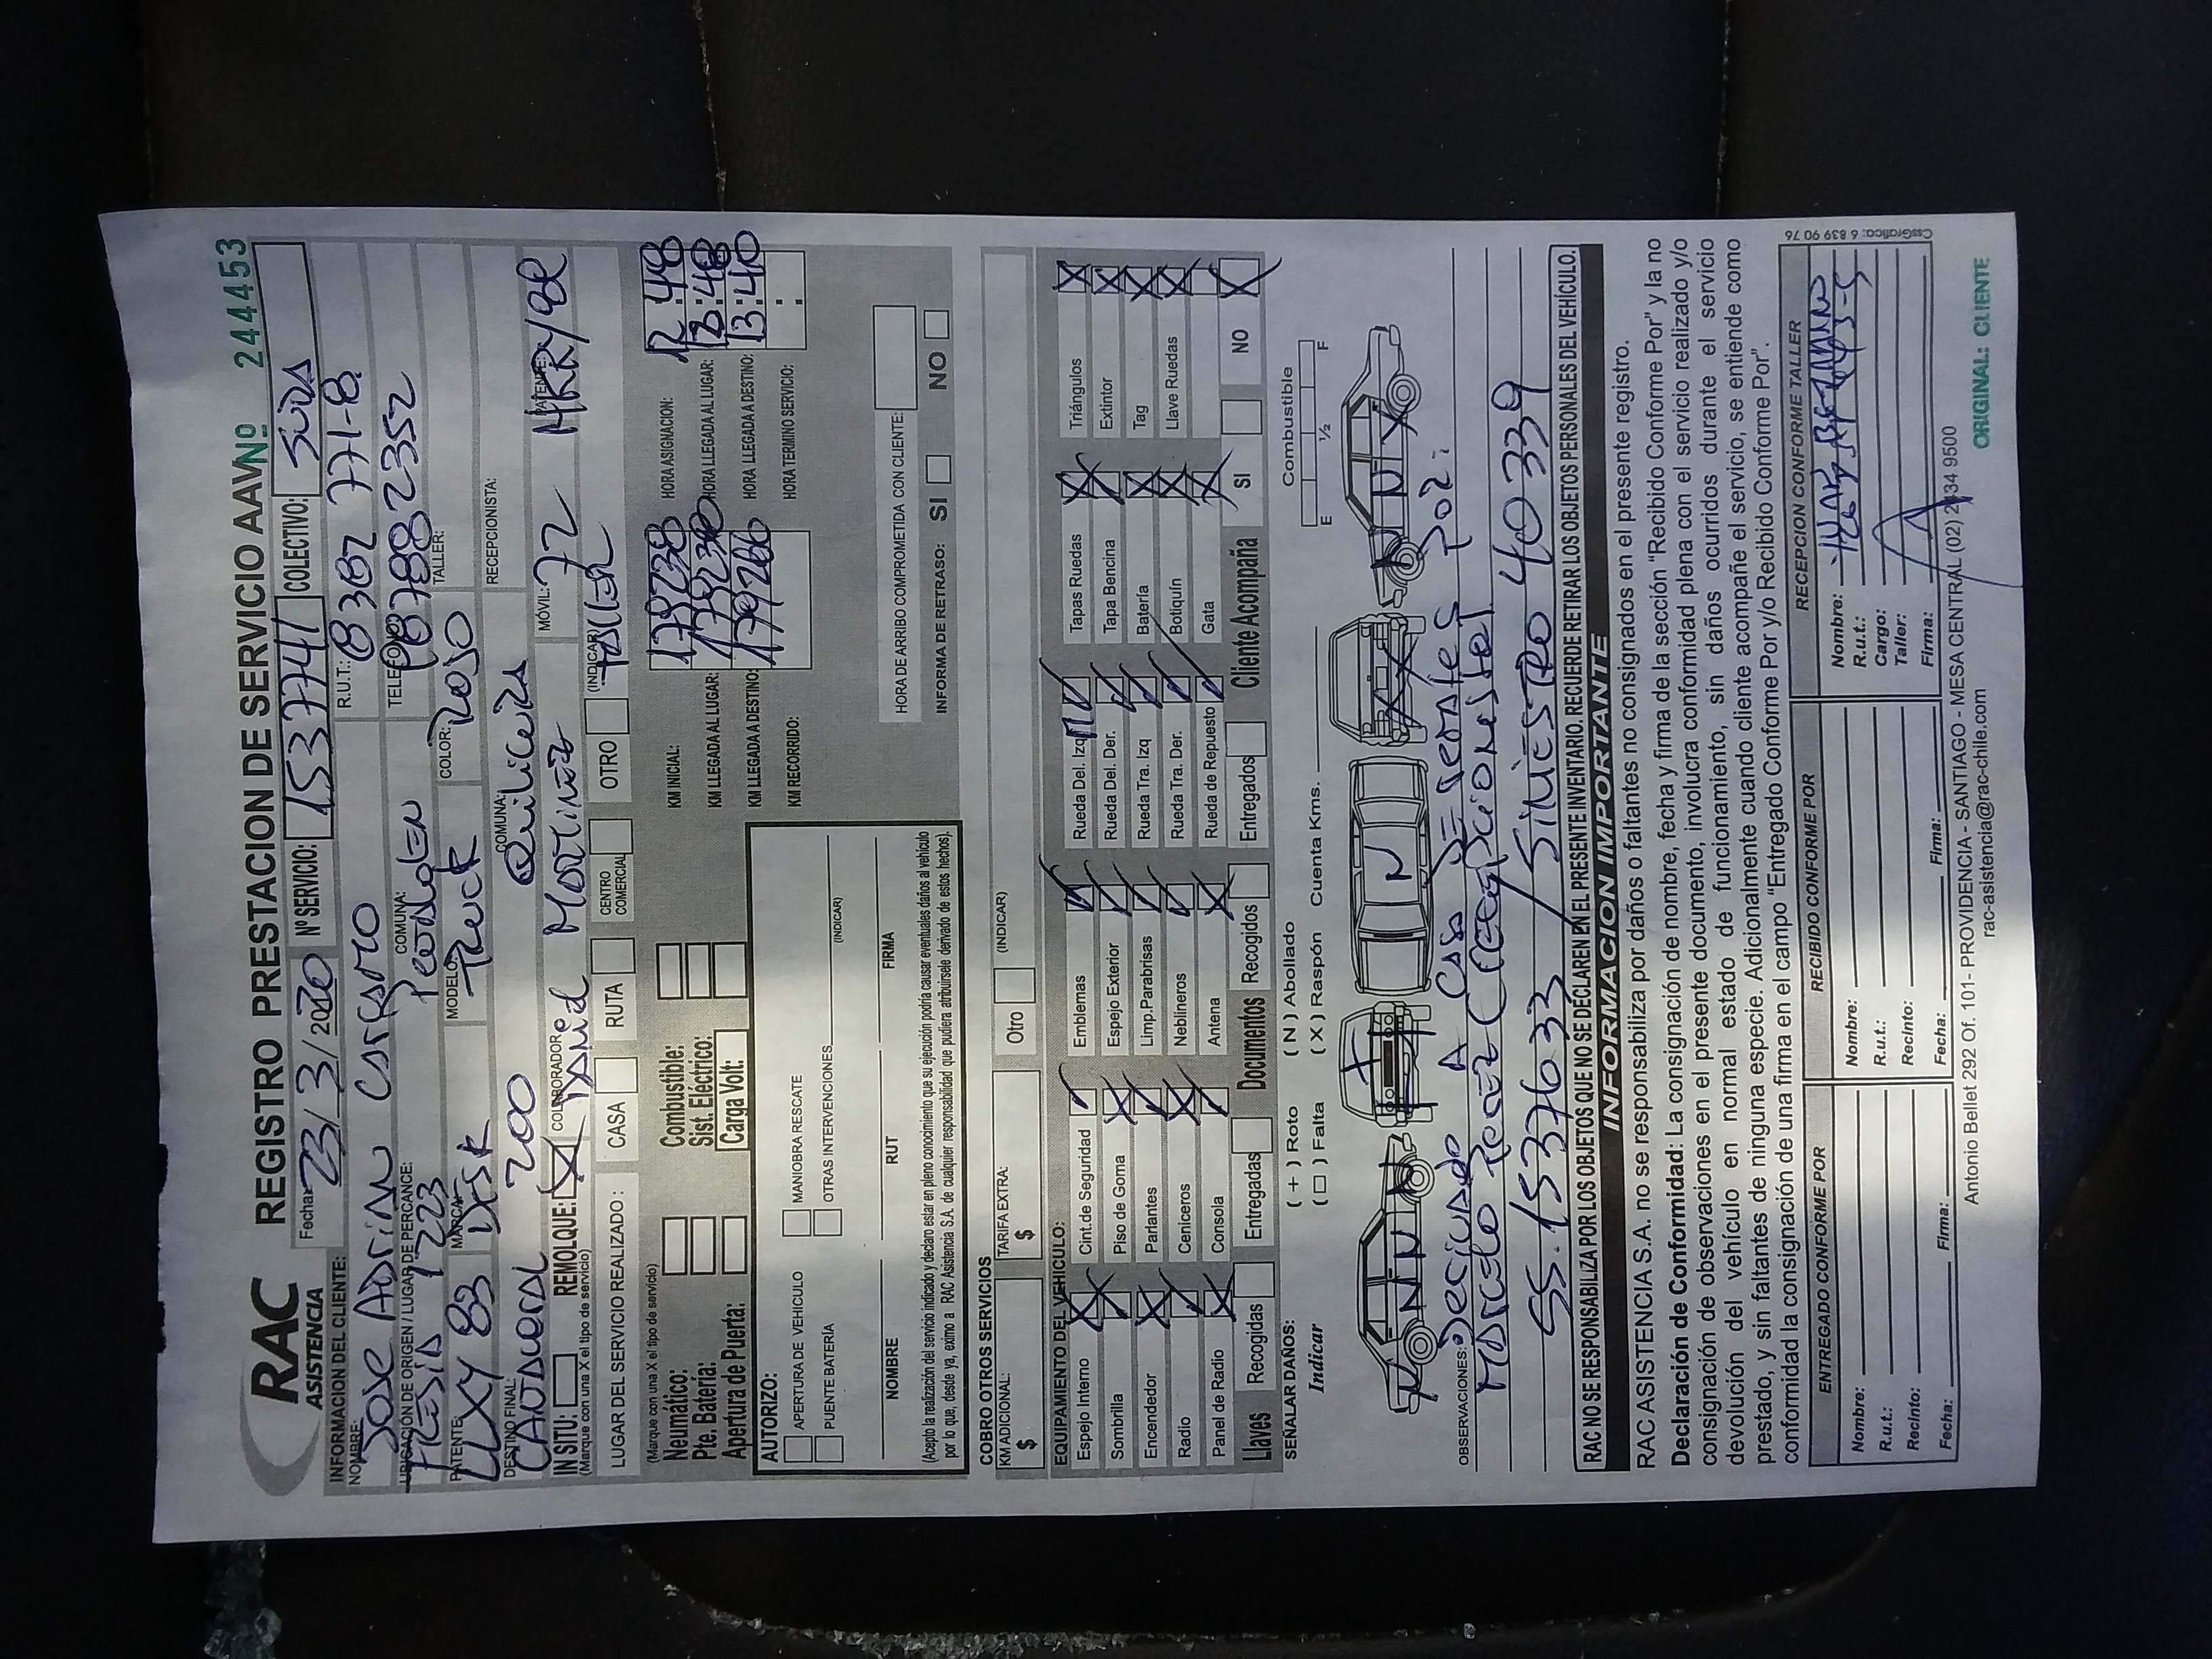 RAC
ASISTENCIA
REGISTRO PRESTACION DE SERVICIO AAV Nº 244453
Fecha: 23/3/2020 Nº SERVICIO: 1537741 COLECTIVO: SUDA
INFORMACION DEL CLIENTE:
NOMBRE: JOSE ADRIAN CASTRO R.U.T.: 8382 771-8
UBICACIÓN DE ORIGEN / LUGAR DE PERCANCE: FRESIA 1223 COMUNA: TELEFONO: 987882352
PATENTE: LLXY 83 MARCA: DFSK MODELO: Truck COLOR: ROJO TALLER:
DESTINO FINAL: CAUDUERAL 200 COMUNA: Quilicura RECEPCIONISTA:
IN SITU: REMOLQUE: X COLABORADOR: DAVID Martinez MÓVIL: 72 PATENTE:
(Marque con una X el tipo de servicio)
LUGAR DEL SERVICIO REALIZADO: CASA RUTA CENTRO COMERCIAL OTRO (INDICAR) TALLER
(Marque con una X el tipo de servicio)
Neumático: Combustible:
Pte. Batería: Sist. Eléctrico:
Apertura de Puerta: Carga Volt:
KM INICIAL: 179238 HORA ASIGNACION: 12:48
KM LLEGADA AL LUGAR: 179238 HORA LLEGADA AL LUGAR:
KM LLEGADA A DESTINO: 179266 HORA LLEGADA A DESTINO: 13:40
KM RECORRIDO: HORA TERMINO SERVICIO:
AUTORIZO:
APERTURA DE VEHICULO MANIOBRA RESCATE
PUENTE BATERÍA OTRAS INTERVENCIONES (INDICAR)
NOMBRE RUT FIRMA
(Acepto la realización del servicio indicado y declaro estar en pleno conocimiento que su ejecución podría causar eventuales daños al vehículo
por lo que, desde ya, eximo a RAC Asistencia S.A. de cualquier responsabilidad que pudiera atribuírsele derivado de estos hechos).
HORA DE ARRIBO COMPROMETIDA CON CLIENTE:
INFORMA DE RETRASO: SI NO
COBRO OTROS SERVICIOS
KM ADICIONAL: $ TARIFA EXTRA: $ Otro (INDICAR)
EQUIPAMIENTO DEL VEHÍCULO:
Espejo Interno Cint. de Seguridad Emblemas Rueda Del. Izq Tapas Ruedas Triángulos
Sombrilla Piso de Goma Espejo Exterior Rueda Del. Der. Tapa Bencina Extintor
Encendedor Parlantes Limp. Parabrisas Rueda Tra. Izq Batería Tag
Radio Ceniceros Neblineros Rueda Tra. Der. Botiquín Llave Ruedas
Panel de Radio Consola Antena Rueda de Repuesto Gata
Llaves Recogidas Entregadas Documentos Recogidos Entregados Cliente Acompaña SI NO
SEÑALAR DAÑOS: (+) Roto (N) Abollado Combustible
Indicar (□) Falta (X) Raspón Cuenta Kms. E ½ F
OBSERVACIONES: A CASA DE POR:
Marcelo Perez
SS. 1537633 / SINIESTRO 40339
RAC NO SE RESPONSABILIZA POR LOS OBJETOS QUE NO SE DECLAREN EN EL PRESENTE INVENTARIO. RECUERDE RETIRAR LOS OBJETOS PERSONALES DEL VEHÍCULO.
INFORMACION IMPORTANTE
RAC ASISTENCIA S.A. no se responsabiliza por daños o faltantes no consignados en el presente registro.
Declaración de Conformidad: La consignación de nombre, fecha y firma de la sección “Recibido Conforme Por” y la no
consignación de observaciones en el presente documento, involucra conformidad plena con el servicio realizado y/o
devolución del vehículo en normal estado de funcionamiento, sin daños ocurridos durante el servicio
prestado, y sin faltantes de ninguna especie. Adicionalmente cuando cliente acompañe el servicio, se entiende como
conformidad la consignación de una firma en el campo “Entregado Conforme Por y/o Recibido Conforme Por”.
ENTREGADO CONFORME POR RECIBIDO CONFORME POR RECEPCION CONFORME TALLER
Nombre: Nombre: Nombre:
R.u.t.: R.u.t.: R.u.t.:
Recinto: Recinto: Cargo:
Taller:
Fecha: Firma: Fecha: Firma: Firma:
CssGrafica: 6 839 90 76
Antonio Bellet 292 Of. 101- PROVIDENCIA - SANTIAGO - MESA CENTRAL (02) 2434 9500
rac-asistencia@rac-chile.com
ORIGINAL: CLIENTE